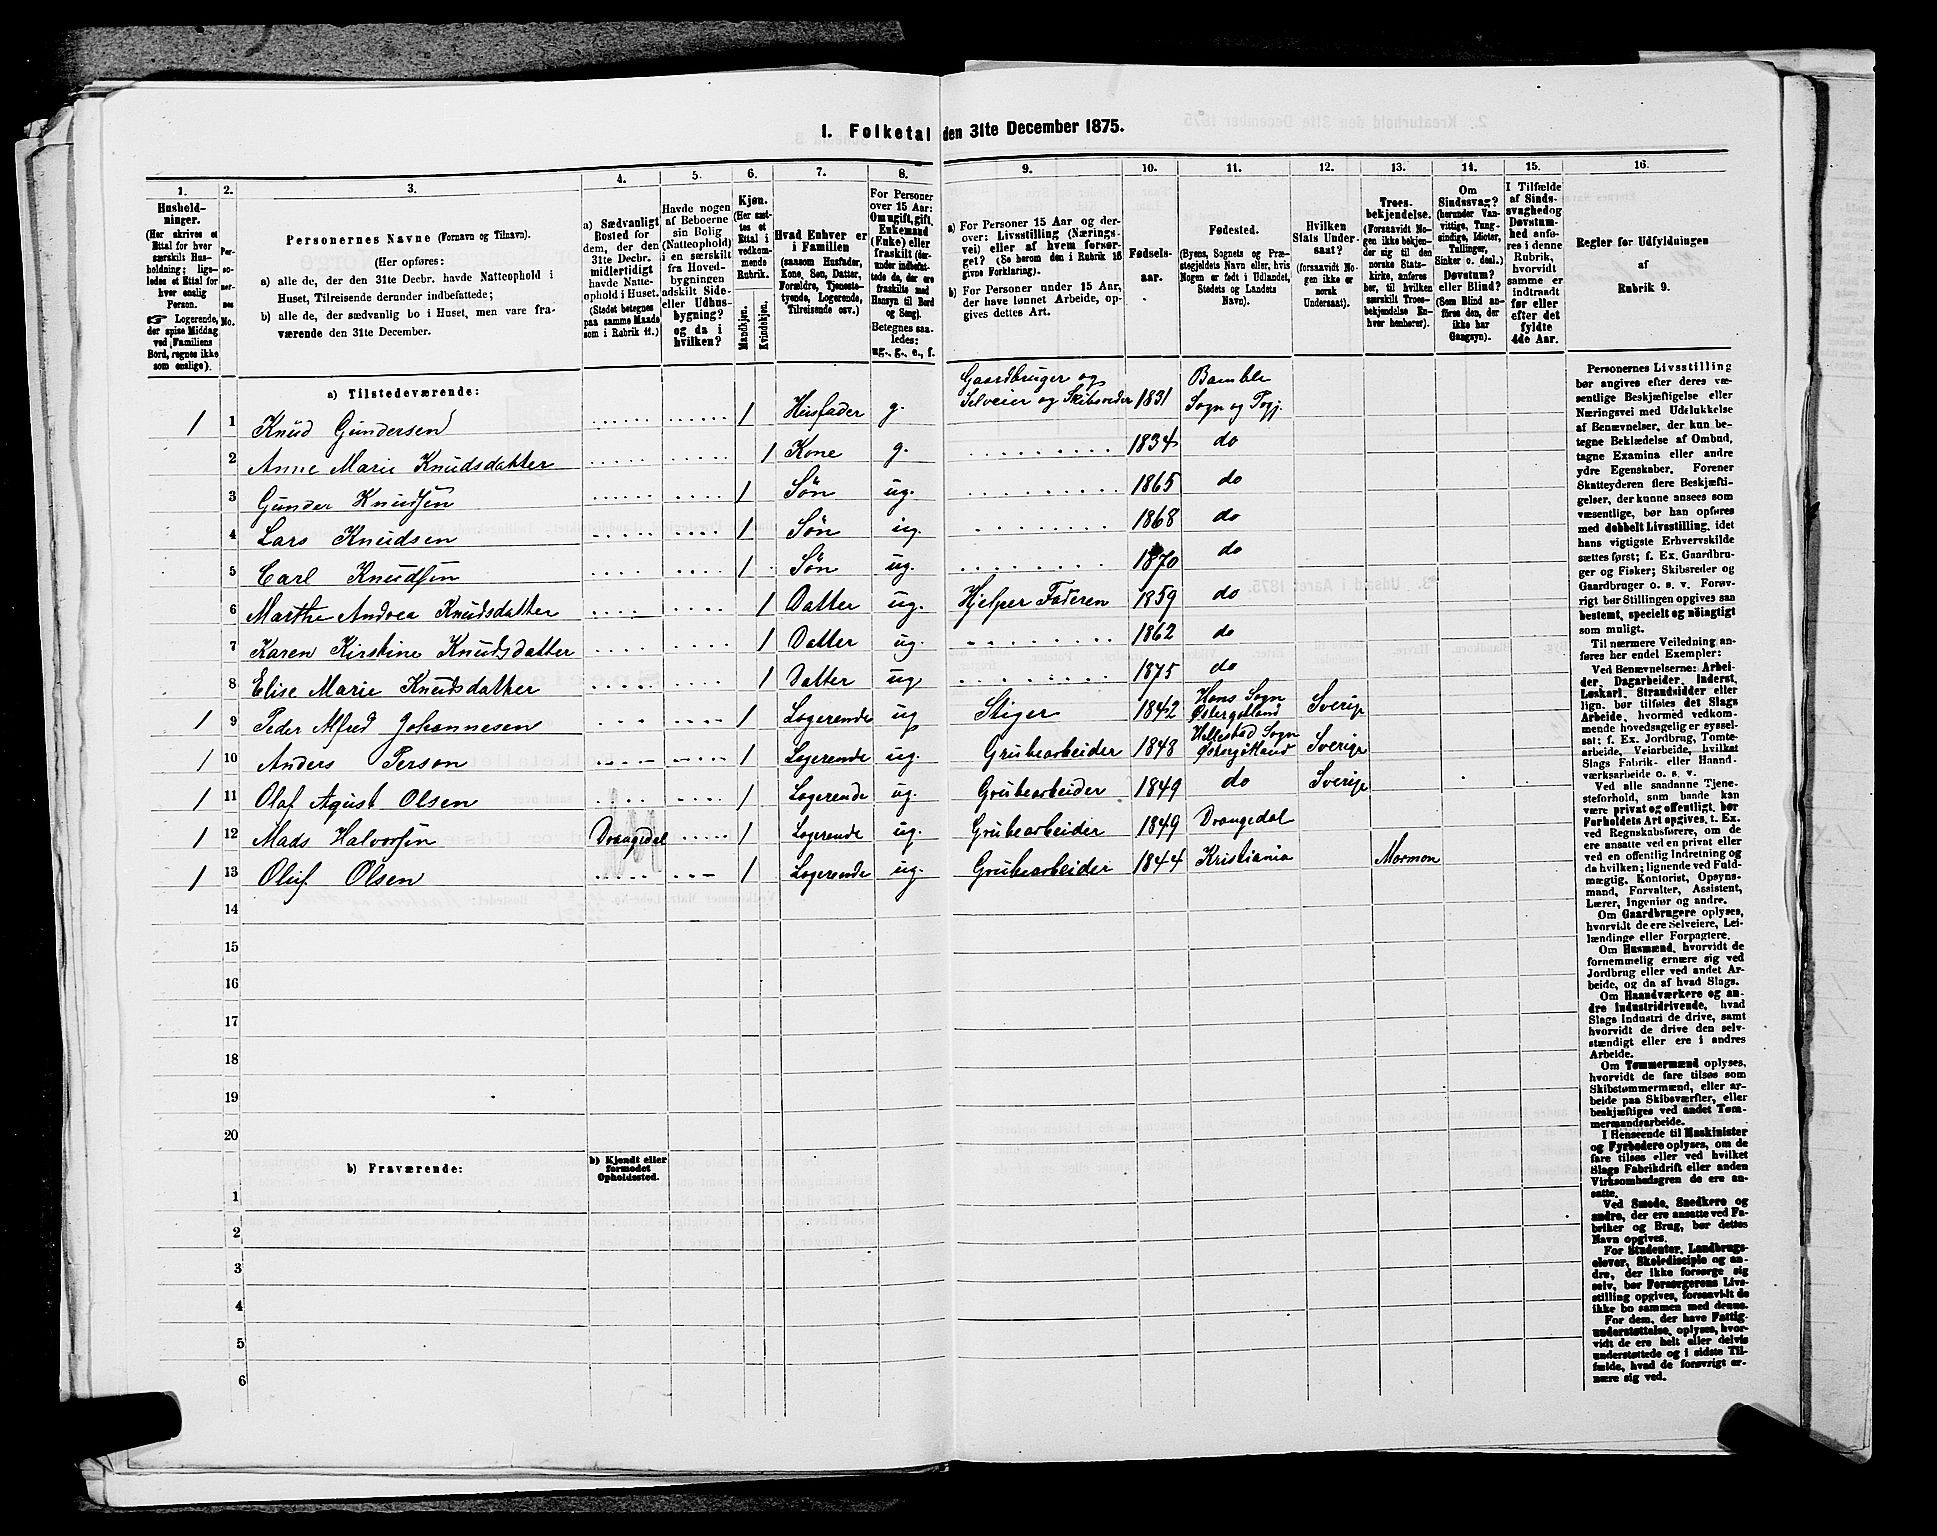 1. Folketal den 31te December 1875.
1.
2.
3.
4.
5.
6.
7.
8.
9.
10.
11.
12.
13.
14.
15.
16.
Hushold-
ninger.
(Her skrives et
Ettal for hver
særskilt Hus-
holdning; lige-
ledes et Ettal for
hver enslig
Person.
☞ Logerende,
der spise Middag
ved Familiens
Bord, regnes ikke
som enslige).
Per-
so-
ner-
nes
No.
Personernes Navne (Fornavn og Tilnavn).
(Her opføres:
a) alle de, der den 31te Decbr. havde Natteophold i
Huset, Tilreisende derunder indbefattede;
b) alle de, der sædvanlig bo i Huset, men vare fra-
værende den 31te December.
a) Sædvanligt
Bosted for
dem, der den
31te Decbr.
midlertidigt
havde Natte-
ophold i Huset.
(Stedet betegnes
paa samme Maade
som i Rubrik 11.)
Havde nogen
af Beboerne
sin Bolig
(Natteophold)
i en særskilt
fra Hoved-
bygningen
adskilt Side-
eller Udhus-
bygning?
og da i
hvilken?
Kjøn.
(Her sæt-
tes et
Ettal i
vedkom-
mende
Rubrik.
Mandkjøn.
Kvindekjøn.
Hvad Enhver er
i Familien
(saasom Husfader,
Kone, Søn, Datter,
Forældre, Tjeneste-
tyende, Logerende,
Tilreisende osv.)
For Personer
over 15 Aar:
Om ugift, gift,
Enkemand
(Enke) eller
fraskilt (der-
under indbefat-
tede de, der ere
fraskilte med
Hensyn til Bord
og Seng).
Betegnes saa-
ledes:
ug., g., e., f.
a) For Personer 15 Aar og der-
over: Livsstilling (Nærings-
vei) eller af hvem forsør-
get? (Se herom den i Rubrik 16
givne Forklaring).
b) For Personer under 15 Aar,
der have lønnet Arbeide, op-
gives dettes Art.
Fødsels-
aar.
Fødested.
(Byens, Sognets og Præ-
stegjeldets Navn eller, hvis
Nogen er født i Udlandet,
Stedets og Landets
Navn).
Hvilken
Stats Under-
saat?
(forsaavidt No-
gen ikke er
norsk
Undersaat).
Troes-
bekjendelse.
(Forsaavidt No-
gen ikke bekjen-
der sig til den
norske Stats-
kirke, anføres
her, til hvilken
særskilt Troes-
bekjendelse En-
hver henhører).
Om
Sindssvag?
(herunder Van-
vittige, Tung-
sindige, Idioter,
Tullinger,
Sinker o. desl.)
Døvstum?
eller Blind?
(Som Blind an-
føres den, der
ikke har
Gangsyn).
I Tilfælde
af Sinds-
svaghed og
Døvstum-
hed anfø-
res i denne
Rubrik,
hvorvidt
samme er
indtraadt
før eller
efter det
fyldte
4de Aar.
Regler for Udfyldningen
af
Rubrik 9.
a) Tilstedeværende:
1 1 Knud Gundersen 1 Husfader g. Gaardbruger og Selveier og Skibsreder 1831 Bamble Sogn og Pgj.
2 Anne Marie Knudsdatter 1 Kone g. 1834 do
3 Gunder Knudsen 1 Søn ug. 1865 do
4 Lars Knudsen 1 Søn ug. 1868 do
5 Carl Knudsen 1 Søn ug. 1870 do
6 Marthe Andrea Knudsdatter 1 Datter ug. Hjelper Faderen 1859 do
7 Karen Kirstine Knudsdatter 1 Datter ug. 1862 do
8 Elise Marie Knudsdatter 1 Datter ug 1875 do
1 9 Peder Alfred Johannesen 1 Logerende ug Stiger 1842 Hans Sogn Østergøtland Sverige
1 10 Anders Person 1 Logerende ug. Grubearbeider 1848 Hellestad Sogn Østergøtland Sverige
1 11 Olaf Agust Olsen 1 Logerende ug. Grubearbeider 1849 do Sverige
1 12 Mads Halvorsen Drangedal 1 Logerende ug. Grubearbeider 1849 Drangedal
1 13 Oluf Olsen 1 Logerende ug. Grubearbeider 1844 Kristiania Mormon
14
15
16
17
18
19
20
b) Fraværende:
b) Kjendt eller
formodet
Opholdssted.
1
2
3
4
5
6
Personernes Livsstilling
bør angives efter deres væ-
sentlige Beskjæftigelse eller
Næringsvei med Udelukkelse
af Benævnelser, der kun be-
tegne Beklædelse af Ombud,
tagne Examina eller andre
ydre Egenskaber. Forener
Skatteyderen flere Beskjæfti-
gelser, der kunne ansees som
væsentlige, bør han opføres
med dobbelt Livsstilling, idet
hans vigtigste Erhvervskilde
sættes først; f. Ex. Gaardbru-
ger og Fisker; Skibsreder og
Gaardbruger o. s. v. Forøv-
rigt bør Stillingen opgives saa
bestemt, specielt og nöiagtigt
som muligt.
Til nærmere Veiledning an-
føres her endel Exempler:
Ved Benævnelserne: Arbei-
der, Dagarbeider, Inderst,
Løskarl, Strandsidder eller
lign. bør tilføies det Slags
Arbeide, hvormed vedkom-
mende hovedsagelig er syssel-
sat; f. Ex. Jordbrug, Tomte-
arbeide, Veiarbeide, hvilket
Slags Fabrik- eller Haand-
værksarbeide o. s. v.
Ved alle saadanne Tjene-
steforhold, som baade kan
være privat og offentligt, bør
Forholdets Art opgives, t. Ex.
ved Regnskabsførere, om de
ere ansatte ved en privat eller
ved en offentlig Indretning og
da hvilken; lignende ved Fuld-
mægtig, Kontorist, Opsyns-
mand, Forvalter, Assistent,
Lærer, Ingeniør og andre.
Om Gaardbrugere oplyses,
hvorvidt de ere Selveiere, Lei-
lændinge eller Forpagtere.
Om Husmænd, hvorvidt de
fornemmelig ernære sig ved
Jordbrug eller ved andet Ar-
beide, og da af hvad Slags.
Om Haandværkere og an-
dre Industridrivende, hvad
Slags Industri de drive, samt
hvorvidt de drive den selv-
stændigt eller ere i andres
Arbeide.
Om Tømmermænd oplyses,
hvorvidt de fare tilsøs som
Skibstømmermænd, eller ar-
beide paa Skibsværfter, eller
beskjæftiges ved andet Tøm-
mermandsarbeide.
I Henseende til Maskinister
og Fyrbødere oplyses, om de
fare tilsøs eller ved hvilket
Slags Fabrikdrift eller anden
Virksomhedsgren de ere an-
satte.
Ved Smede, Snedkere og
andre, der ere ansatte ved Fa-
briker og Brug, bør dettes
Navn opgives.
For Studenter, Landbrugs-
elever, Skoledisciple og an-
dre, der ikke forsørge sig
selv, bør Forsørgerens Livs-
stilling opgives, forsaavidt de
ikke bo sammen med denne.
For dem, der have Fattig-
understøttelse, oplyses, hvor-
vidt de ere helt eller delvis
understøttede og i sidste Til-
fælde, hvad de forøvrigt er-
nære sig ved.